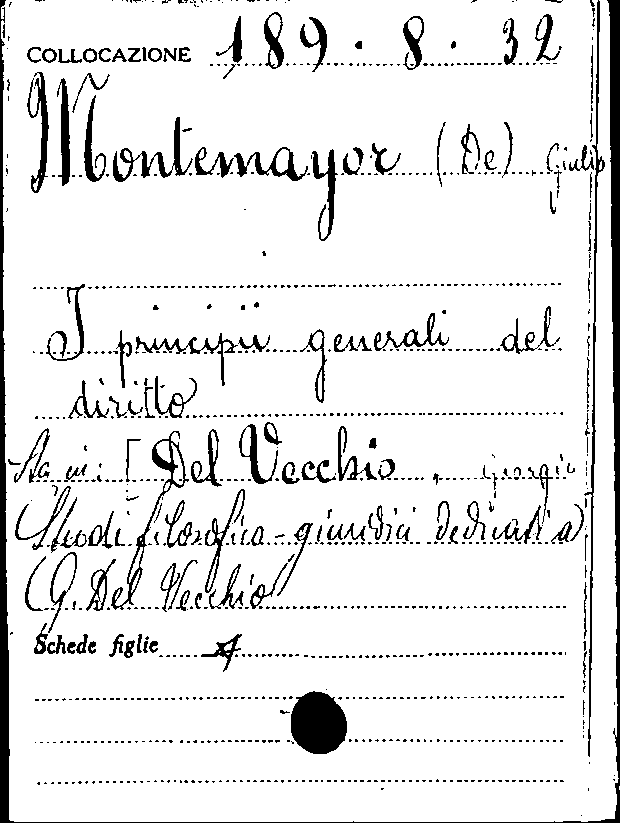 COLLOCAZIONE 189.8.32
Montemayor (De) Giulio
I principii generali del
diritto
Sta in: [Del Vecchio, Giorgio
Studi filosofico-giuridici dedicati a
G. Del Vecchio
Schede figlie